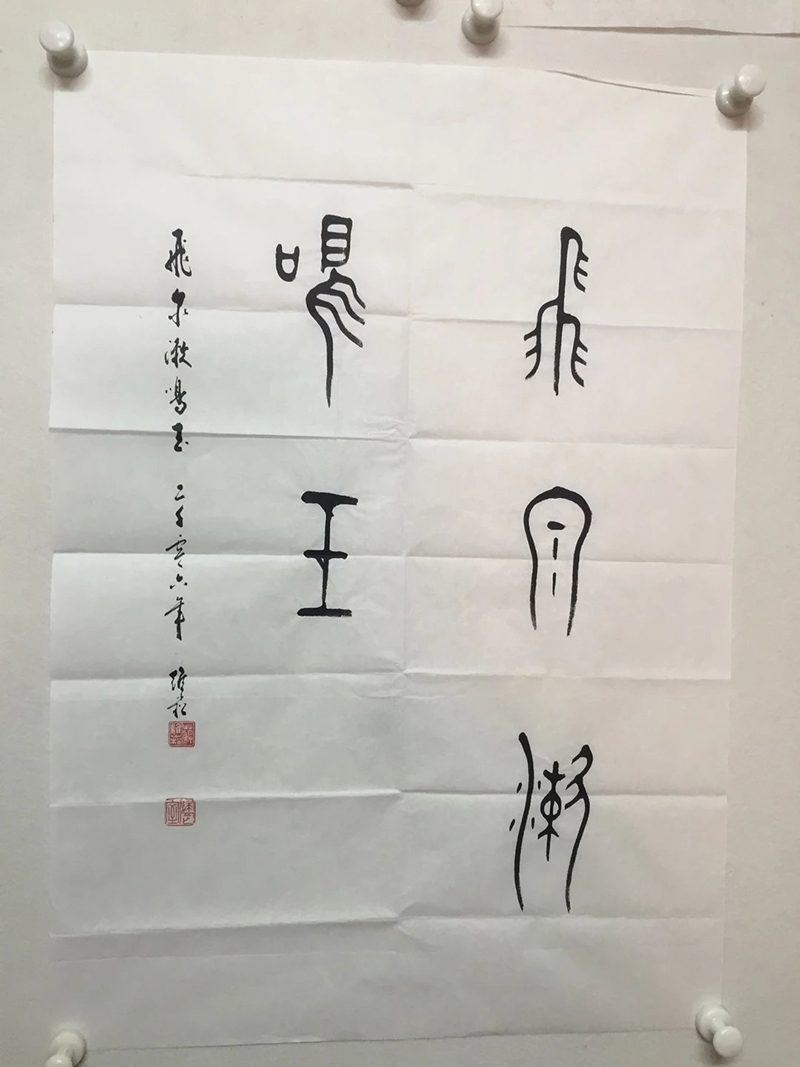 飛泉漱
鳴玉
飛泉漱鳴玉 二千零六年